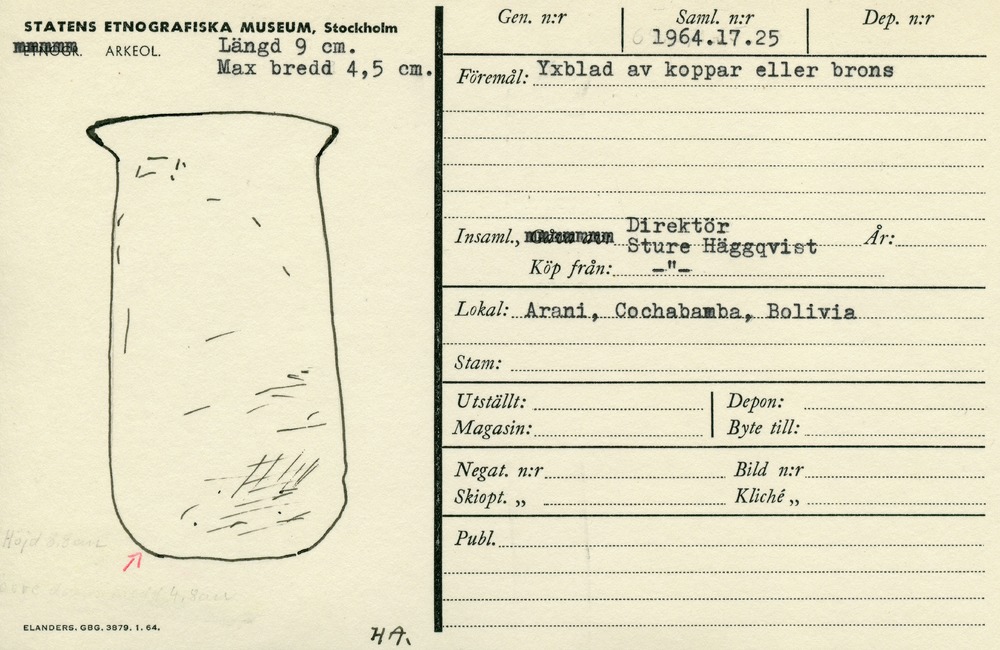 STATENS ETNOGRAFISKA MUSEUM, Stockholm
ETNOGR. ARKEOL.
Längd 9 cm.
Max bredd 4,5 cm.
Höjd 8.8 cm
4,8 cm
ELANDERS. GBG. 3879. 1. 64.
HA.
Gen. n:r
Saml. n:r
Dep. n:r
1964.17.25
Föremål: Yxblad av koppar eller brons
Insaml., Direktör
Sture Häggqvist År:
Köp från: -"-
Lokal: Arani, Cochabamba, Bolivia
Stam:
Utställt: Depon:
Magasin: Byte till:
Negat. n:r Bild n:r
Skiopt. „ Kliché „
Publ.